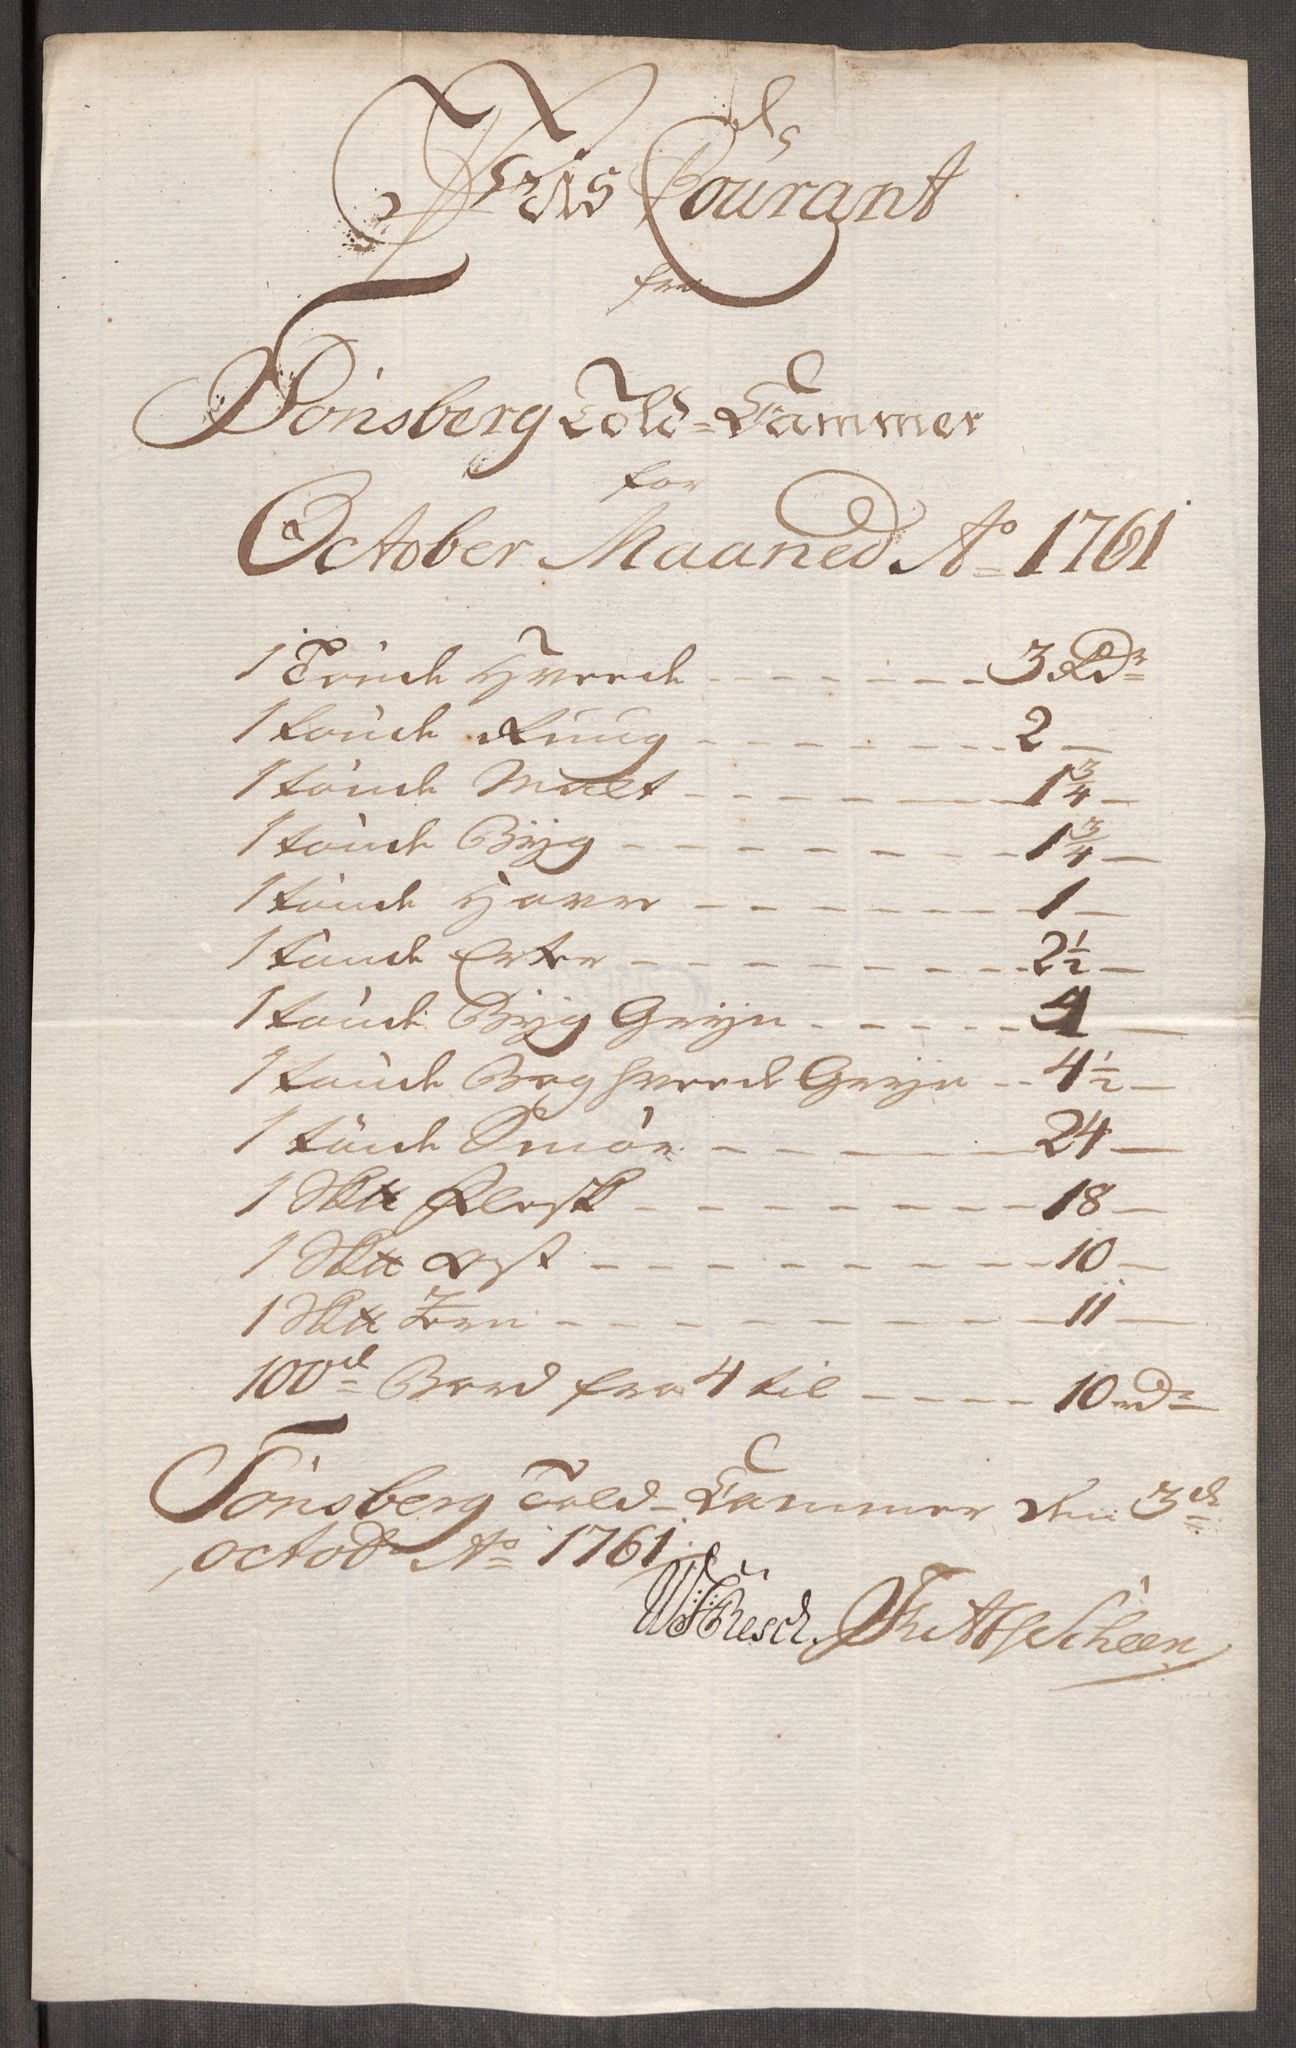 Priis Courant
fra
Tønsberg Told-Cammer
for
October Maaned Ao 1761
1 Tønde Hvede 3 Rdr
1 tønde Ruug 2
1 tønde Malt 1 3/4
1 tønde Byg 1 3/4
1 tønde Havre 1
1 tønde Erter 2 1/2
1 tønde Byg Gryn 4
1 tønde Boghvede Gryn 4 1/2
1 tønde Smør 24
1 Sk℔ Flesk 18
1 Sk℔ Ost 10
1 Sk℔ Jern 11
100de Bord fra 4 til 10 rdr
Tønsberg Told-Cammer den 3de
octobr Ao 1761
Resch. Scheen